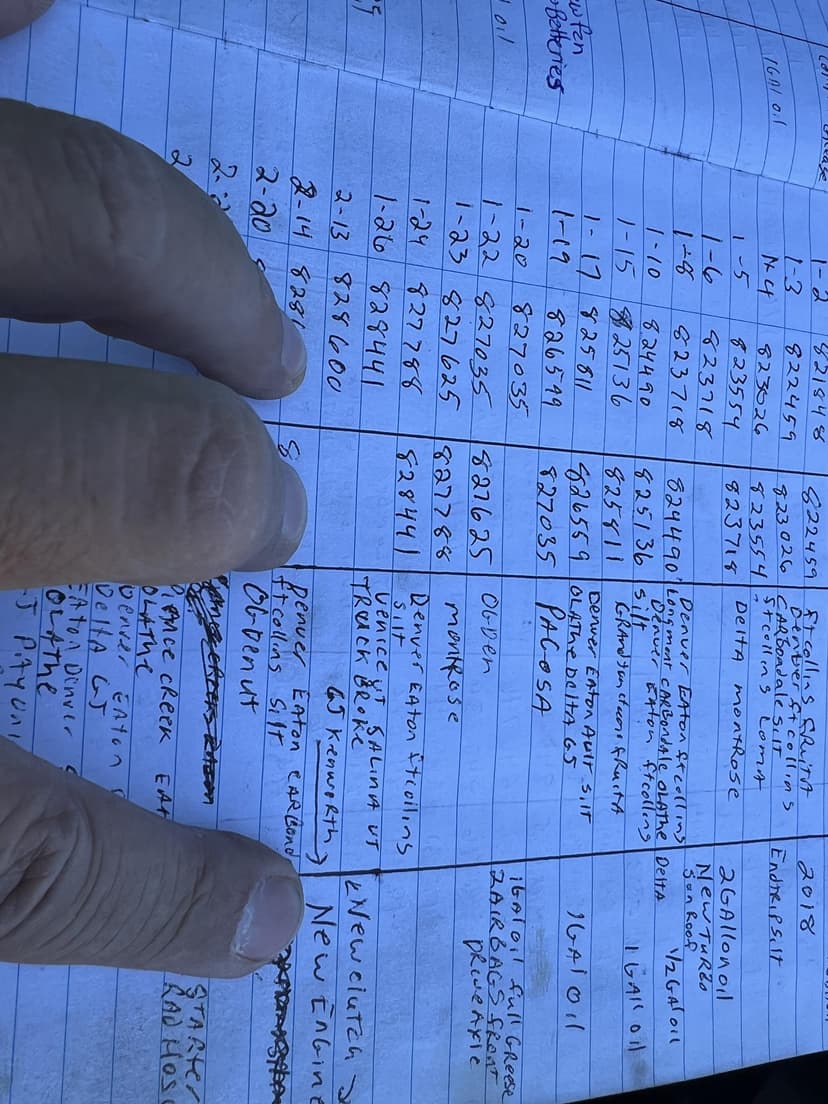 1-2 821848 822459 ftcollins fRuitA 2018
1-3 822459 823026 Denver ftcollins CARbondale silt Endtripsilt
1-4 823026 823554 ftcollins LomA
1-5 823554 823718 DeltA montRose 2GAllon oil
1-6 823718 New TURbo SunRoof
1-8 823718 824490 Denver EAton ftcollins Longmont CARbondale OLAthe DeltA 1/2GAl oil
1-10 824490 825136 Denver EAton ftcollins silt
1-15 825136 825811 GRAndjunction fRuitA 1GAll oil
1-17 825811 826559 Denver EAton Ault silt
1-19 826599 827035 OLAthe DeltA GJ PAGOSA 1GAl OIl
1-20 827035
1-22 827035 827625 OGDen 1GAl oil full GReese 2AIRBAGS fRont DRive Axle
1-23 827625 827788 montRose
1-24 827788 828441 Denver EAton ftcollins silt
1-26 828441 Venice UT SALINA UT TRUCK BROKE <New clutch
2-13 828600 GJ Kenworth New Engine
2-14 828 8 Denver EAton CARbond ftcollins silt
2-20 OGDen ut
2
PIANCE CREEK
OLAthe STARTER
Denver EAton RAD HOSE
DeltA GJ
EAton Dinver
OLAThe
1GAl oil
oil
batteries